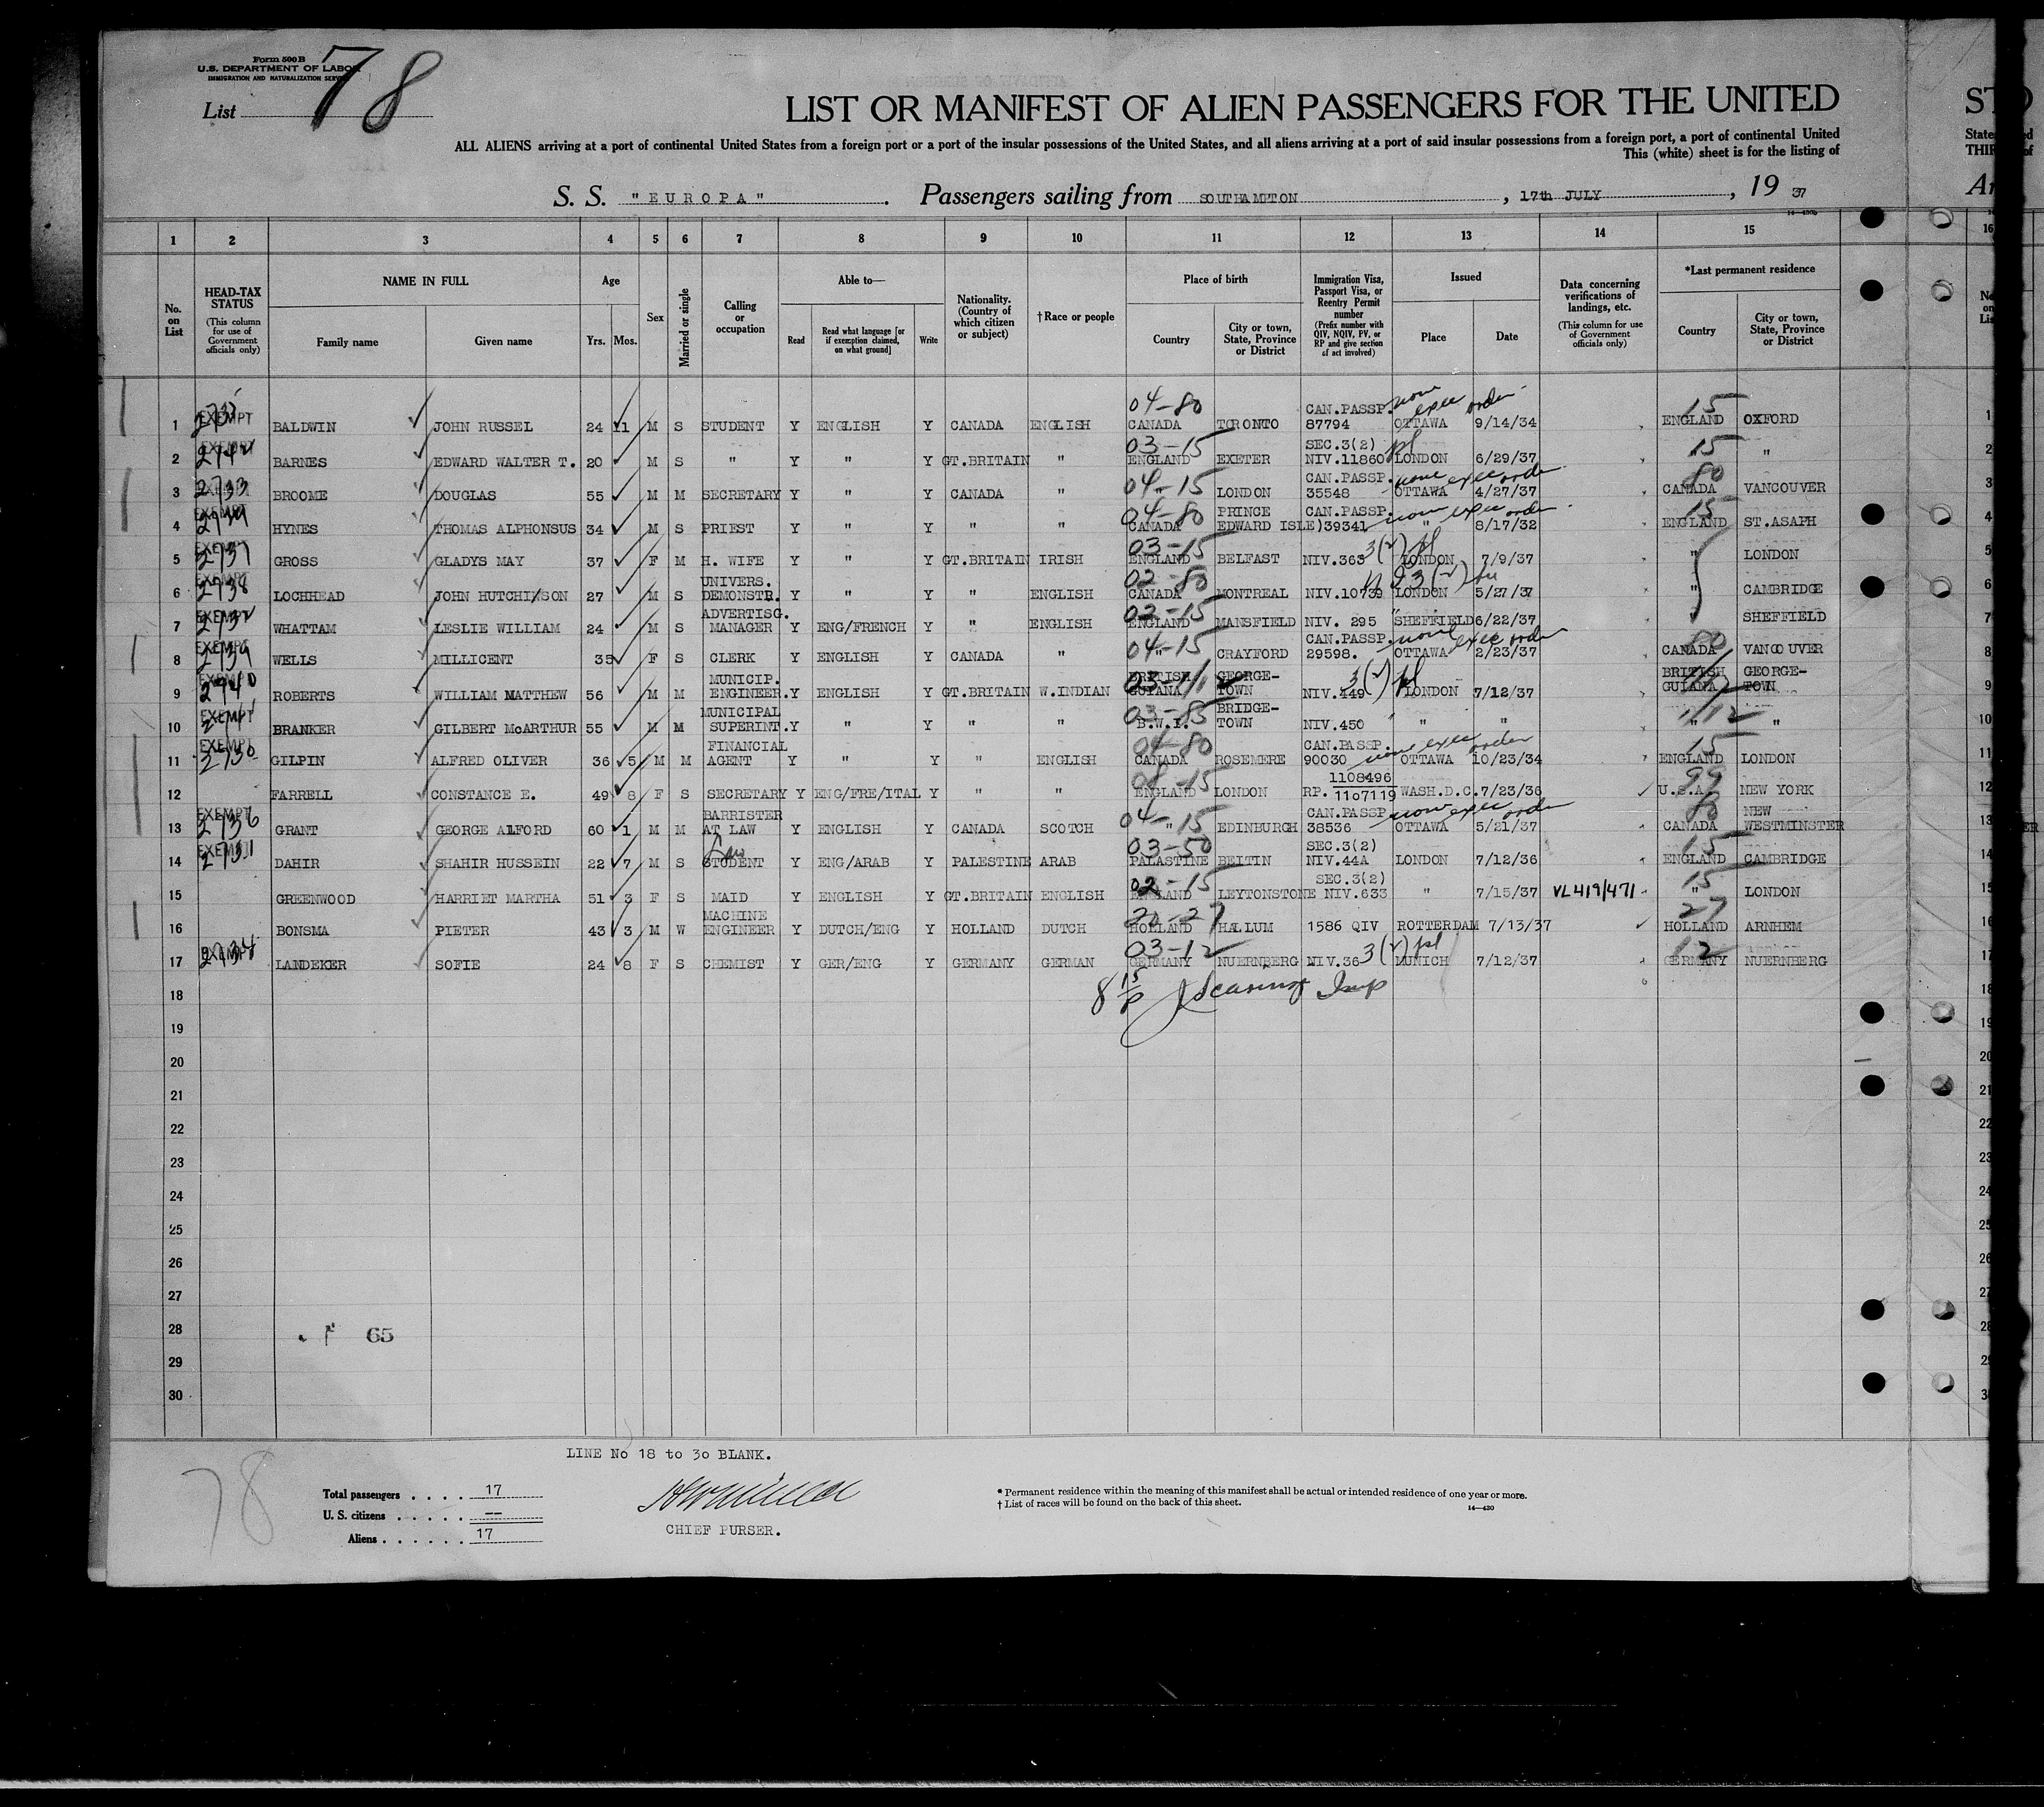 Form 500 B
U.S. DEPARTMENT OF LABOR
IMMIGRATION AND NATURALIZATION
List 78
LIST OR MANIFEST OF ALIEN PASSENGERS FOR THE UNITED
ALL ALIENS arriving at a port of continental United States from a foreign port or a port of the insular possessions of the United States, and all aliens arriving at a port of said insular possessions from a foreign port, a port of continental United
This (white) sheet is for the listing of
S. S. "EUROPA". Passengers sailing from SOUTHAMPTON, 17th JULY, 19 37
1 2 3 4 5 6 7 8 9 10 11 12 13 14 15
No. on List
HEAD-TAX STATUS (This column for use of Government officials only)
NAME IN FULL Family name Given name
Age Yrs. Mos.
Sex
Married or single
Calling or occupation
Able to— Read Read what language [or if exemption claimed, on what ground] Write
Nationality. (Country of which citizen or subject)
†Race or people
Place of birth Country City or town, State, Province or District
Immigration Visa, Passport Visa, or Reentry Permit number (Prefix number with QIV, NQIV, PV, or RP and give section of act involved)
Issued Place Date
Data concerning verifications of landings, etc. (This column for use of Government officials only)
*Last permanent residence Country City or town, State, Province or District
1 EXEMPT BALDWIN JOHN RUSSEL 24 11 M S STUDENT Y ENGLISH Y CANADA ENGLISH 04-80 CANADA TORONTO CAN.PASSP. 87794 none exec order OTTAWA 9/14/34 15 ENGLAND OXFORD
2 EXEMPT BARNES EDWARD WALTER T. 20 M S " Y " Y GT.BRITAIN " 03-15 ENGLAND EXETER SEC.3(2) NIV.11860 LONDON 6/29/37 15 "
3 EXEMPT 2733 BROOME DOUGLAS 55 M M SECRETARY Y " Y CANADA " 04-15 " LONDON CAN.PASSP. 35548 none exec order OTTAWA 4/27/37 80 CANADA VANCOUVER
4 EXEMPT HYNES THOMAS ALPHONSUS 34 M S PRIEST Y " Y " " 04-80 CANADA PRINCE EDWARD ISLE) CAN.PASSP. 39341 none exec order " 8/17/32 15 ENGLAND ST.ASAPH
5 EXEMPT GROSS GLADYS MAY 37 F M H. WIFE Y " Y GT.BRITAIN IRISH 03-15 ENGLAND BELFAST NIV.363 3(2) LONDON 7/9/37 " LONDON
6 EXEMPT 2738 LOCHHEAD JOHN HUTCHINSON 27 M S UNIVERS. DEMONSTR. Y " Y " ENGLISH 02-80 CANADA MONTREAL NIV.10739 3(2) LONDON 5/27/37 " CAMBRIDGE
7 EXEMPT WHATTAM LESLIE WILLIAM 24 M S ADVERTISG. MANAGER Y ENG/FRENCH Y " ENGLISH 02-15 ENGLAND MANSFIELD NIV. 295 SHEFFIELD 6/22/37 " SHEFFIELD
8 EXEMPT 2739 WELLS MILLICENT 35 F S CLERK Y ENGLISH Y CANADA " 04-15 " CRAYFORD CAN.PASSP. 29598. none exec order OTTAWA 2/23/37 80 CANADA VANCOUVER
9 EXEMPT 2740 ROBERTS WILLIAM MATTHEW 56 M M MUNICIP. ENGINEER. Y ENGLISH Y GT.BRITAIN W.INDIAN BRITISH GUIANA GEORGE-TOWN NIV.449 3(2) LONDON 7/12/37 BRITISH GUIANA GEORGE-TOWN
10 EXEMPT BRANKER GILBERT McARTHUR 55 M M MUNICIPAL SUPERINT. Y " Y " " B.W.I. BRIDGE-TOWN NIV.450 " " " "
11 EXEMPT 2730 GILPIN ALFRED OLIVER 36 5 M M FINANCIAL AGENT Y " Y " ENGLISH 04-80 CANADA ROSEMERE CAN.PASSP. 90030 none exec order OTTAWA 10/23/34 15 ENGLAND LONDON
12 FARRELL CONSTANCE E. 49 8 F S SECRETARY Y ENG/FRE/ITAL Y " " ENGLAND LONDON RP. 1108496 1107119 WASH.D.C. 7/23/36 99 U.S.A. NEW YORK
13 EXEMPT 2736 GRANT GEORGE ALFORD 60 1 M M BARRISTER AT LAW Y ENGLISH Y CANADA SCOTCH 04-15 " EDINBURGH CAN.PASSP 38536 none exec order OTTAWA 5/21/37 80 CANADA NEW WESTMINSTER
14 EXEMPT 2731 DAHIR SHAHIR HUSSEIN 22 7 M S Law STUDENT Y ENG/ARAB Y PALESTINE ARAB 03-50 PALASTINE BEITIN SEC.3(2) NIV.44A LONDON 7/12/36 15 ENGLAND CAMBRIDGE
15 GREENWOOD HARRIET MARTHA 51 3 F S MAID Y ENGLISH Y GT.BRITAIN ENGLISH 02-15 ENGLAND LEYTONSTONE SEC.3(2) NIV.633 " 7/15/37 VL419/471 15 " LONDON
16 BONSMA PIETER 43 3 M W MACHINE ENGINEER Y DUTCH/ENG Y HOLLAND DUTCH 20-27 HOLLAND HALLUM 1586 QIV ROTTERDAM 7/13/37 27 HOLLAND ARNHEM
17 EXEMPT 2734 LANDEKER SOFIE 24 8 F S CHEMIST Y GER/ENG Y GERMANY GERMAN 03-12 GERMANY NUERNBERG NIV.36 3(2) MUNICH 7/12/37 12 GERMANY NUERNBERG
18
19
20
21
22
23
24
25
26
27
28 65
29
30
LINE No 18 to 30 BLANK.
78
Total passengers . . . . 17
U. S. citizens . . . . . --
Aliens . . . . . . 17
CHIEF PURSER.
* Permanent residence within the meaning of this manifest shall be actual or intended residence of one year or more.
† List of races will be found on the back of this sheet.
14—430